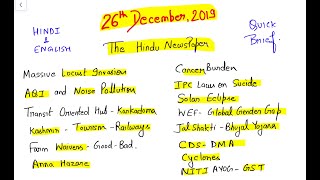 26th December, 2019
HINDI & ENGLISH
Quick Brief.
The Hindu Newspaper
Massive Locust Invasion
AQI and Noise Pollution
Transit Oriented Hub - Karkadooma
Kashmir - Tourism - Railways
Farm Waivers - Good - Bad.
Anna Hazare
Cancer Burden
IPC Laws on Suicide
Solar Eclipse
WEF - Global Gender Gap
Jal Shakti - Bhujal Yojana
CDS - DMA
Cyclones
NITI AYOG - GST